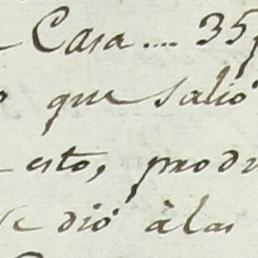 Casa .... 35
que salió
esto, produ
se dió à las